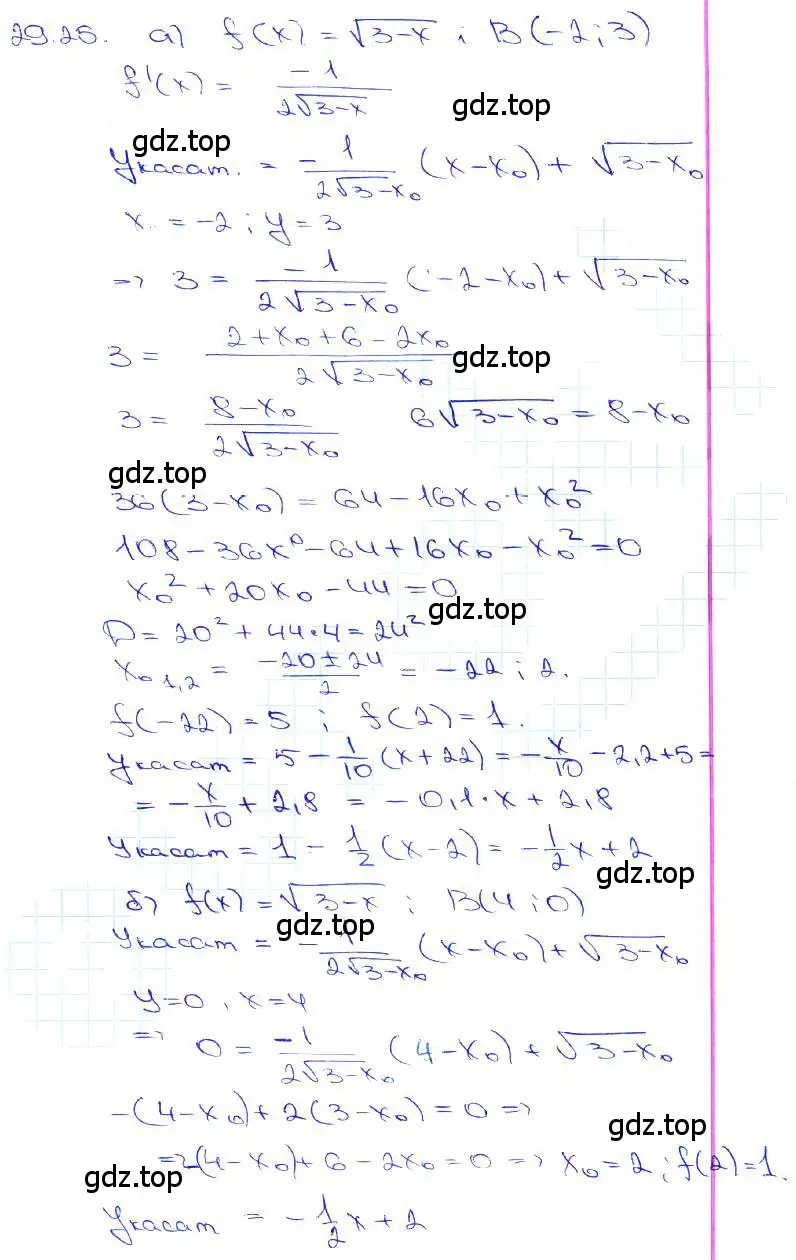 29.25. а) f(x) = √3-x ; B(-2; 3)
f'(x) = -1/2√3-x
gdz.top
gdz.top
Yкасат. = -1/2√3-x₀ (x-x₀) + √3-x₀
x = -2 ; y = 3
=> 3 = -1/2√3-x₀ (-2-x₀) + √3-x₀
3 = 2+x₀+6-2x₀/2√3-x₀
gdz.top
3 = 8-x₀/2√3-x₀ 6√3-x₀ = 8-x₀
gdz.top
36(3-x₀) = 64-16x₀+x₀²
108-36x⁰-64+16x₀-x₀²=0
x₀²+20x₀-44=0
gdz.top
D=20²+44·4=24²
x₀ 1,2 = -20±24/2 = -22 ; 2.
f(-22)=5 ; f(2)=1.
Yкасат = 5 - 1/10 (x+22) = -x/10 - 2,2+5 =
= -x/10 + 2,8 = -0,1·x + 2,8
Yкасат = 1 - 1/2 (x-2) = -1/2 x + 2
gdz.top
б) f(x) = √3-x ; B(4 ; 0)
gdz.top
Yкасат = -1/2√3-x₀ (x-x₀) + √3-x₀
y=0 , x=4
=> 0 = -1/2√3-x₀ (4-x₀) + √3-x₀
-(4-x₀)+2(3-x₀)=0 =>
gdz.top
=>-(4-x₀)+6-2x₀=0 => x₀=2 ; f(2)=1.
gdz.top
Yкасат = -1/2 x + 2